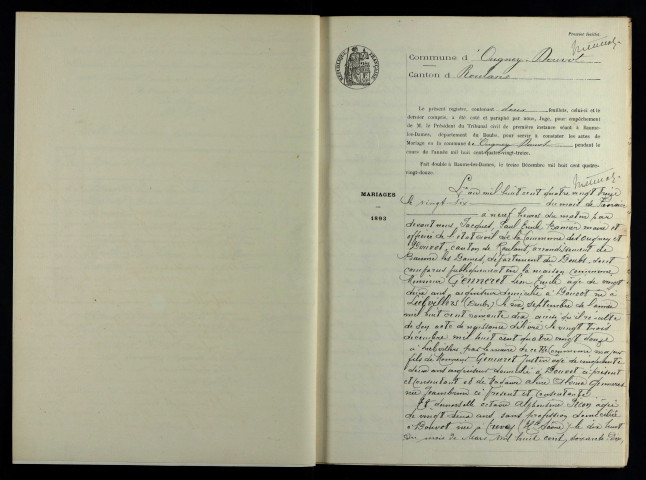 Premier feuillet.
Commune d'Ougney-Douvot
Canton d Roulans
RÉPUBLIQUE FRANÇAISE
Le présent registre, contenant douze feuillets, celui-ci et le
dernier compris, a été coté et paraphé par nous, Juge, pour empêchement
de M. le Président du Tribunal civil de première instance séant à Baume-
les-Dames, département du Doubs, pour servir à constater les actes de
Mariage en la commune de Ougney Douvot pendant le
cours de l'année mil huit cent quatre-vingt-treize.
Fait double à Baume-les-Dames, le treize Décembre mil huit cent quatre-
vingt-douze.
MARIAGES
1893
L'an mil huit cent quatre vingt treize
le vingt six du mois de Janvier
à neuf heures du matin par
devant nous Jacquet, Paul Emile maire et
officier de l'état civil de la Commune de Ougney et
Douvot, canton de Roulans, arrondissement de
Baume les Dames, département du Doubs, sont
comparus publiquement en la maison commune
Monsieur Gemeret Léon Emile âgé de vingt
deux ans, domicilié à Douvot né à
(Doubs) le septembre de l'année
mil huit cent soixante dix, ainsi qu'il résulte
de son acte de naissance délivré le vingt trois
décembre mil huit cent quatre vingt douze
à par le maire de cette Commune majeur
fils de Monsieur Gemeret Justin âgé de cinquante
deux ans domicilié à Douvot ci présent
et consentant et de Madame
ci présent et consentante.
Et demoiselle Alphonsine âgée
de vingt deux ans, sans profession domiciliée
à Douvot née à (Hte Saône) le dix huit
du mois de Mars mil huit cent soixante dix,